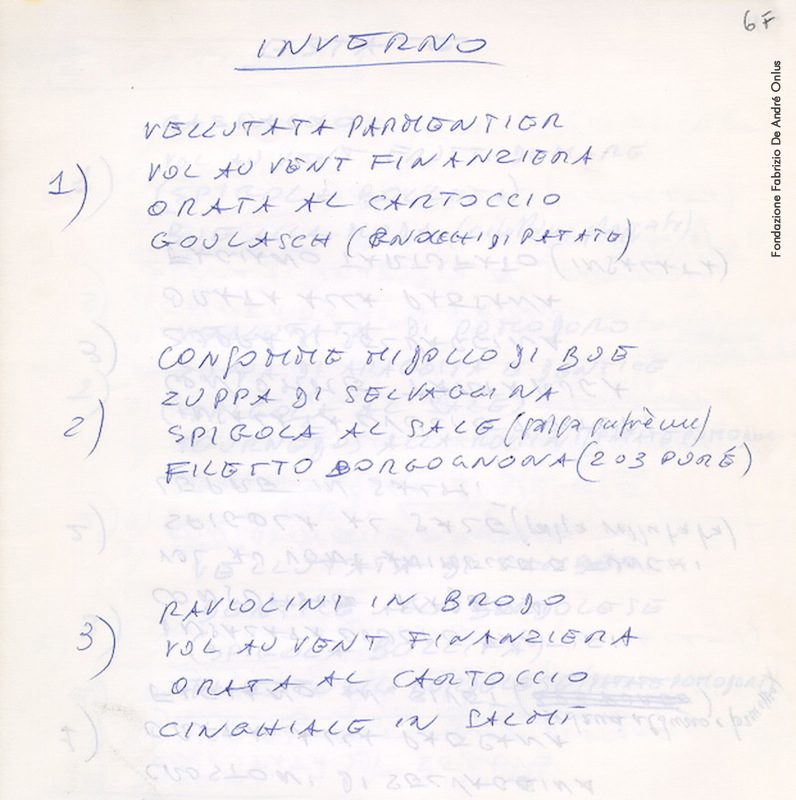 6F
INVERNO
Fondazione Fabrizio De André Onlus
1)
VELLUTATA PARMENTIER
VOL AU VENT FINANZIERA
ORATA AL CARTOCCIO
GOULASCH (GNOCCHI DI PATATE)
2)
CONSOMME MIDOLLO DI BUE
ZUPPA DI SELVAGGINA
SPIGOLA AL SALE (salsa suprème)
FILETTO BORGOGNONA (2 o 3 PURÉ)
3)
RAVIOLINI IN BRODO
VOL AU VENT FINANZIERA
ORATA AL CARTOCCIO
CINGHIALE IN SALMÌ